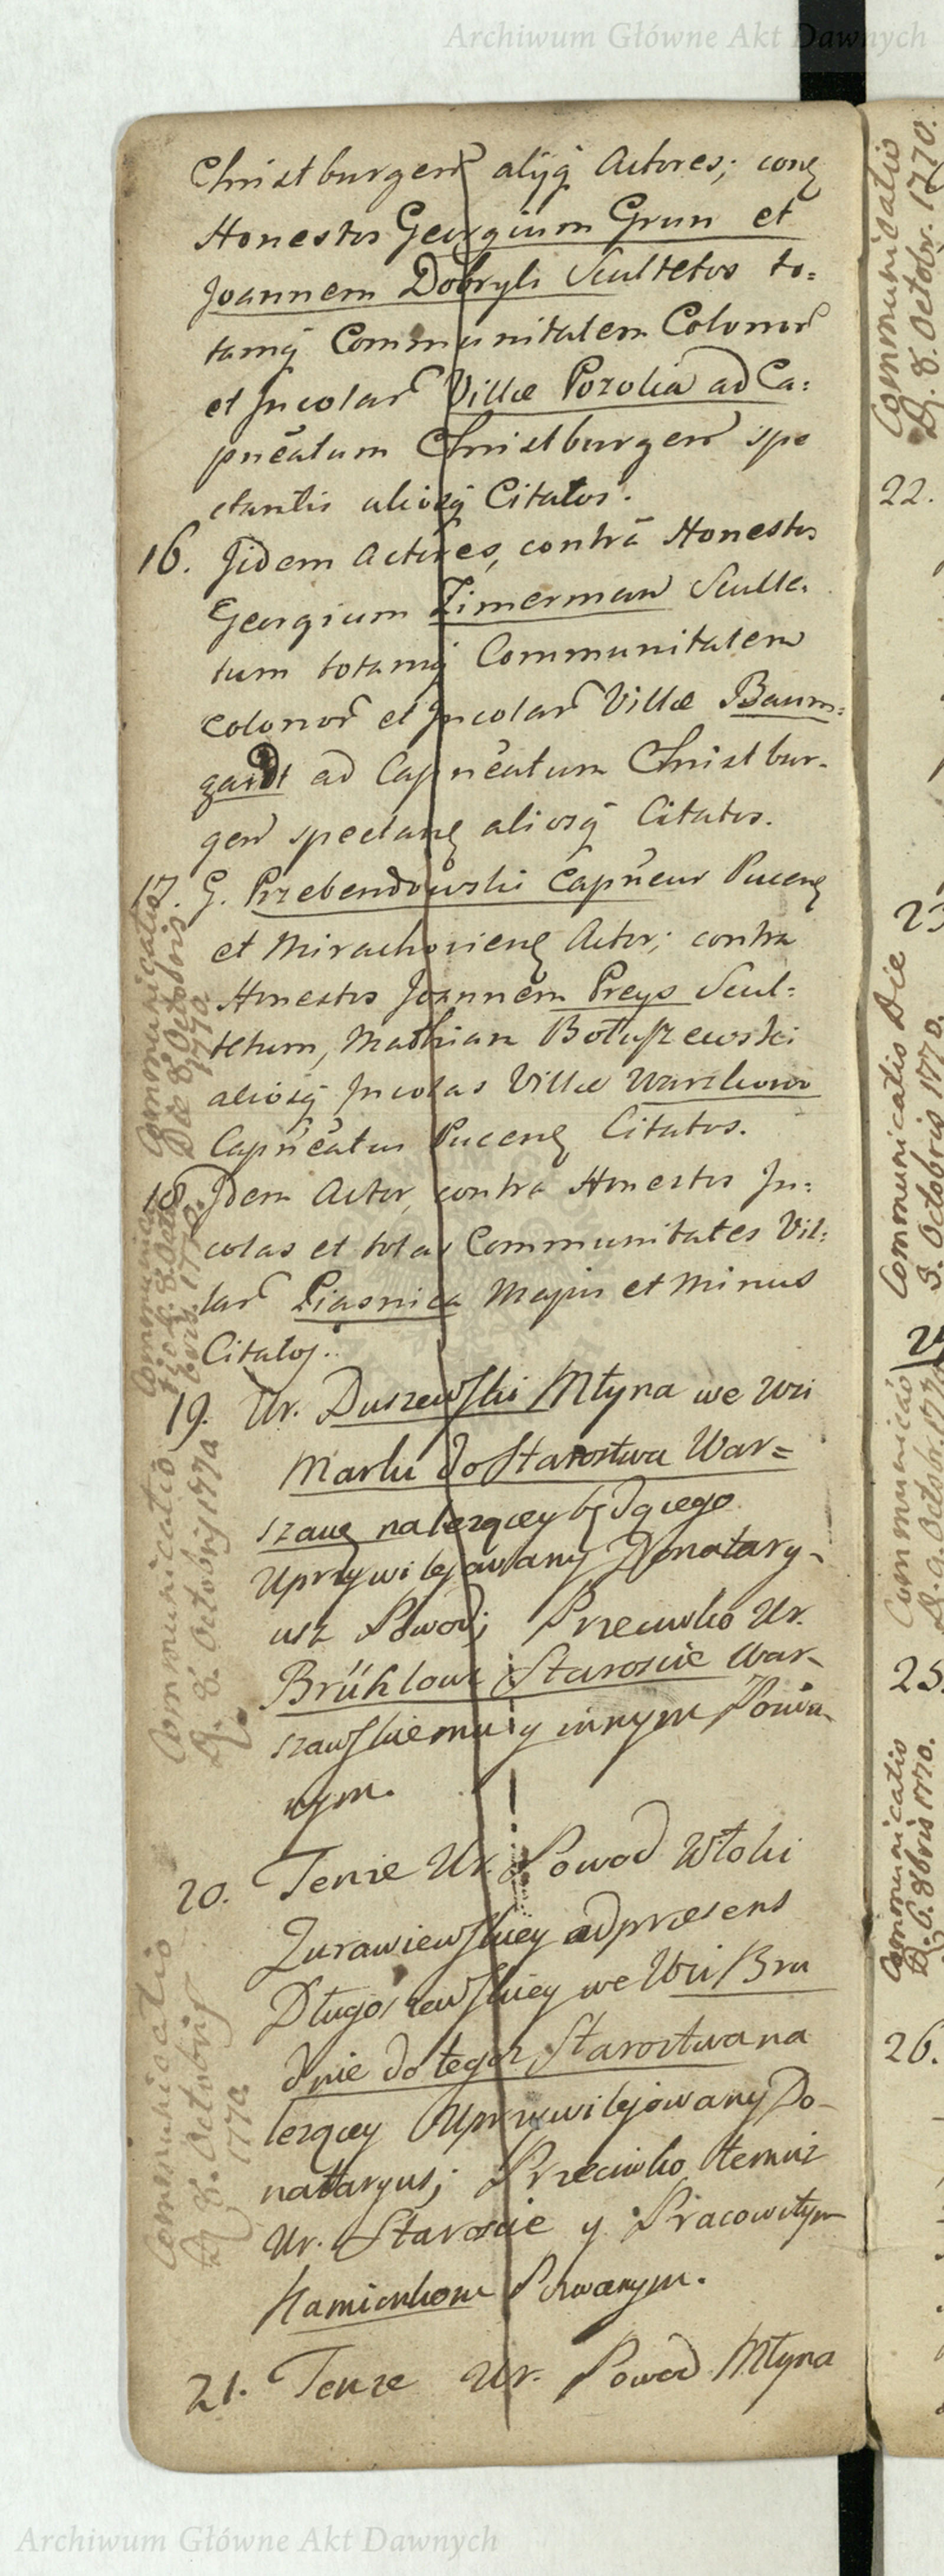 Archiwum Główne Akt Dawnych
Christburgen̄ alijq̨ Actores; con̨
Honestos Georgium Grun et
Joannem Dobryls Scultetos to=
tamq̨ Communitatem Colonor̄
et Incolar̄ Villæ Pozolia ad Ca=
pnēatum Christburgen̄ spe
ctantis aliosq̨ Citatos.
16. Jidem Actores, contrā Honestos
Georgium Zimerman Sculte.
tum totamq̨ Communitatem
Colonor̄ et Incolar̄ Villæ Baum=
gardt ad Capnēatum Christbur-
gen̄ spectan̨ aliosq̨ Citatos.
17. G. Przebendowski Capnēus Pucen̨
et Mirachovien̨ Actor; contra
Honestos Joannem Preys Scul=
tetum, Mathian Botuszewski
aliosq̨ Incolas Villæ Warzkowo
Capnēatus Pucen̨ Citatos.
18. Idem Actor, contra Honestos In=
colas et totas Communitates Vil=
lar̄ Piasnica Majus et Minus
Citatos.
19. Ur. Duszewski Młyna we Wsi
Marku do Starostwa War=
szaw̨ nalezącey będącego
Uprzywilejowany Donatary-
usz Powod; Przeciwko Ur.
Brühlowi Staroscie War-
szawskiemu y innym Pozwa-
nym.
20. Tenze Ur. Powod Włoki
Zurawiewskiey ad præsens
Długoszewskiey we Wsi Bru
dnie do tegoz Starostwa na
lezącey Uprzywilejowany Do-
nattaryus; Przeciwko temuz
Ur. Staroscie y Pracowitym
Kamionkom Pozwanym.
21. Tenze Ur. Powod Młyna
Communicatio
Die 8 Octobris
1770
Communicatio
D. 8. Octobris 1770
Communicatio
D. 8. Octobris
1770
Communicatio
D. 8. Octobr. 1770.
22.
23
Communicatio Die
8. Octobris 1770.
Communicatio
25.
Communicatio
D. 8. 8bris 1770.
26.
Archiwum Główne Akt Dawnych